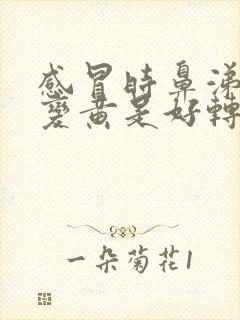 感冒時鼻涕
變黃是好轉
一朵菊花1